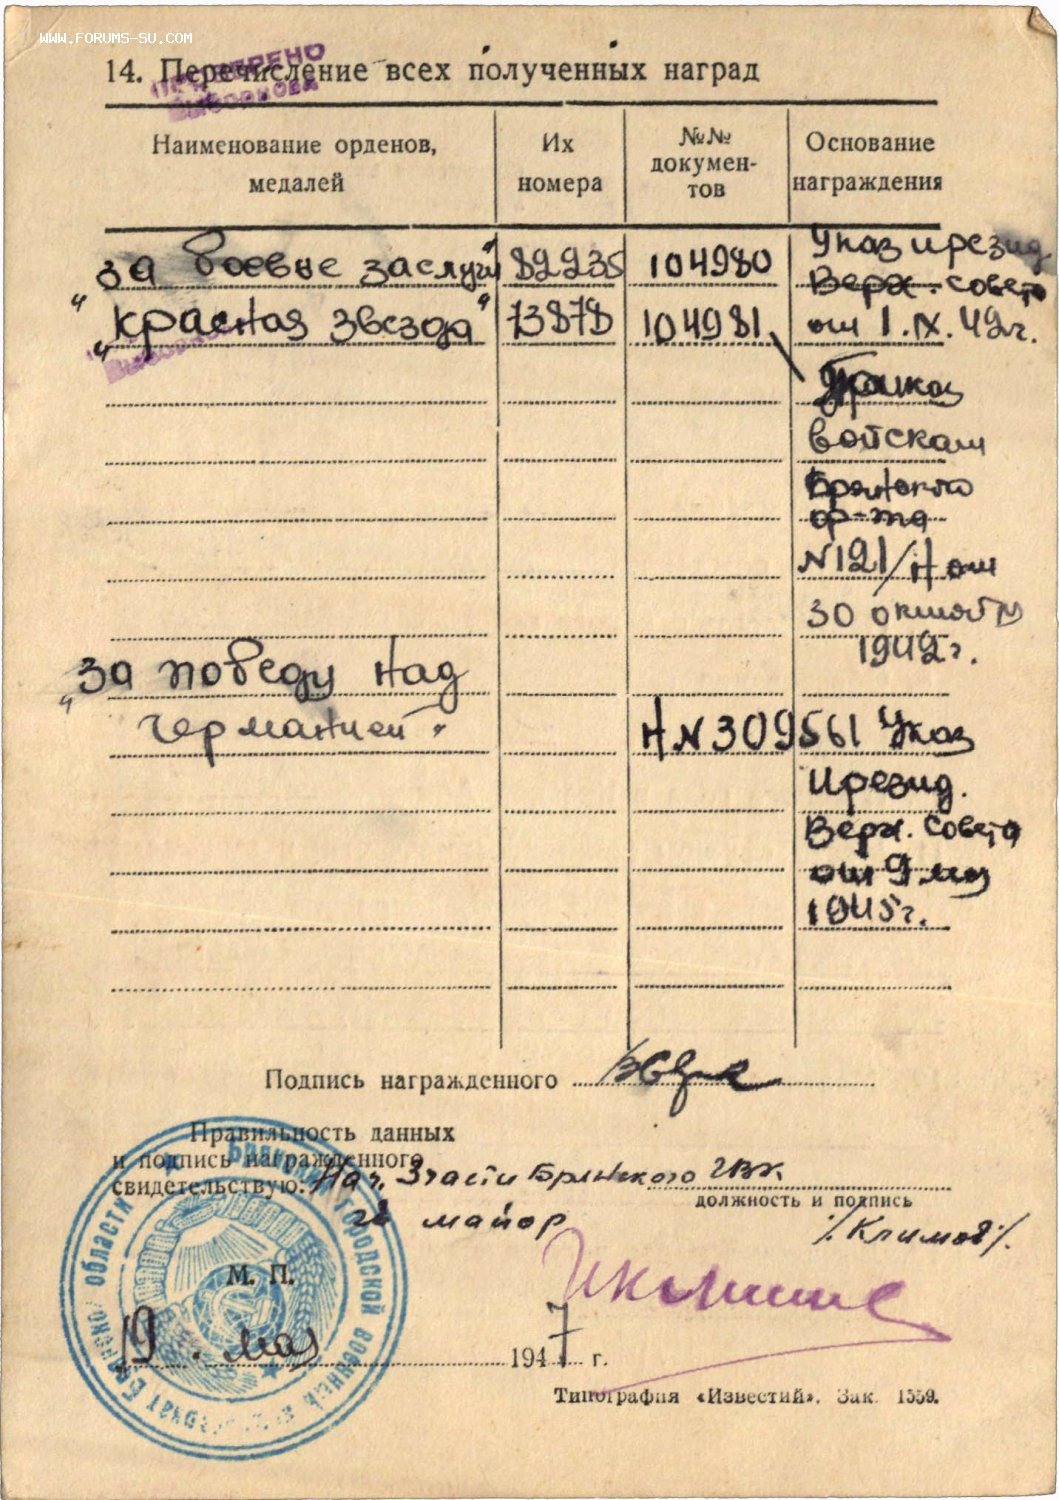 WWW.FORUMS-SU.COM
ПРОВЕРЕНО
14. Перечисление всех полученных наград
Наименование орденов, медалей
Их номера
№№ документов
Основание награждения
"За боевые заслуги" 82235 104980 Указ презид
Верх. совета
"Красная звезда" 73878 104981 от 1.IX.42г.
Приказ
войскам
Брянского
фр-та
N121/Н от
30 октября
1942г.
"За победу над
Германией" Н N 309561 Указ
Презид.
Верх. Совета
от 9 мая
1945г.
Подпись награжденного
Правильность данных
и подпись награжденного
свидетельствую: Нач. 3 части Брянского ГВК
должность и подпись
майор /Климов/.
М. П.
19 мая 1947 г.
Типография «Известий». Зак. 1559.